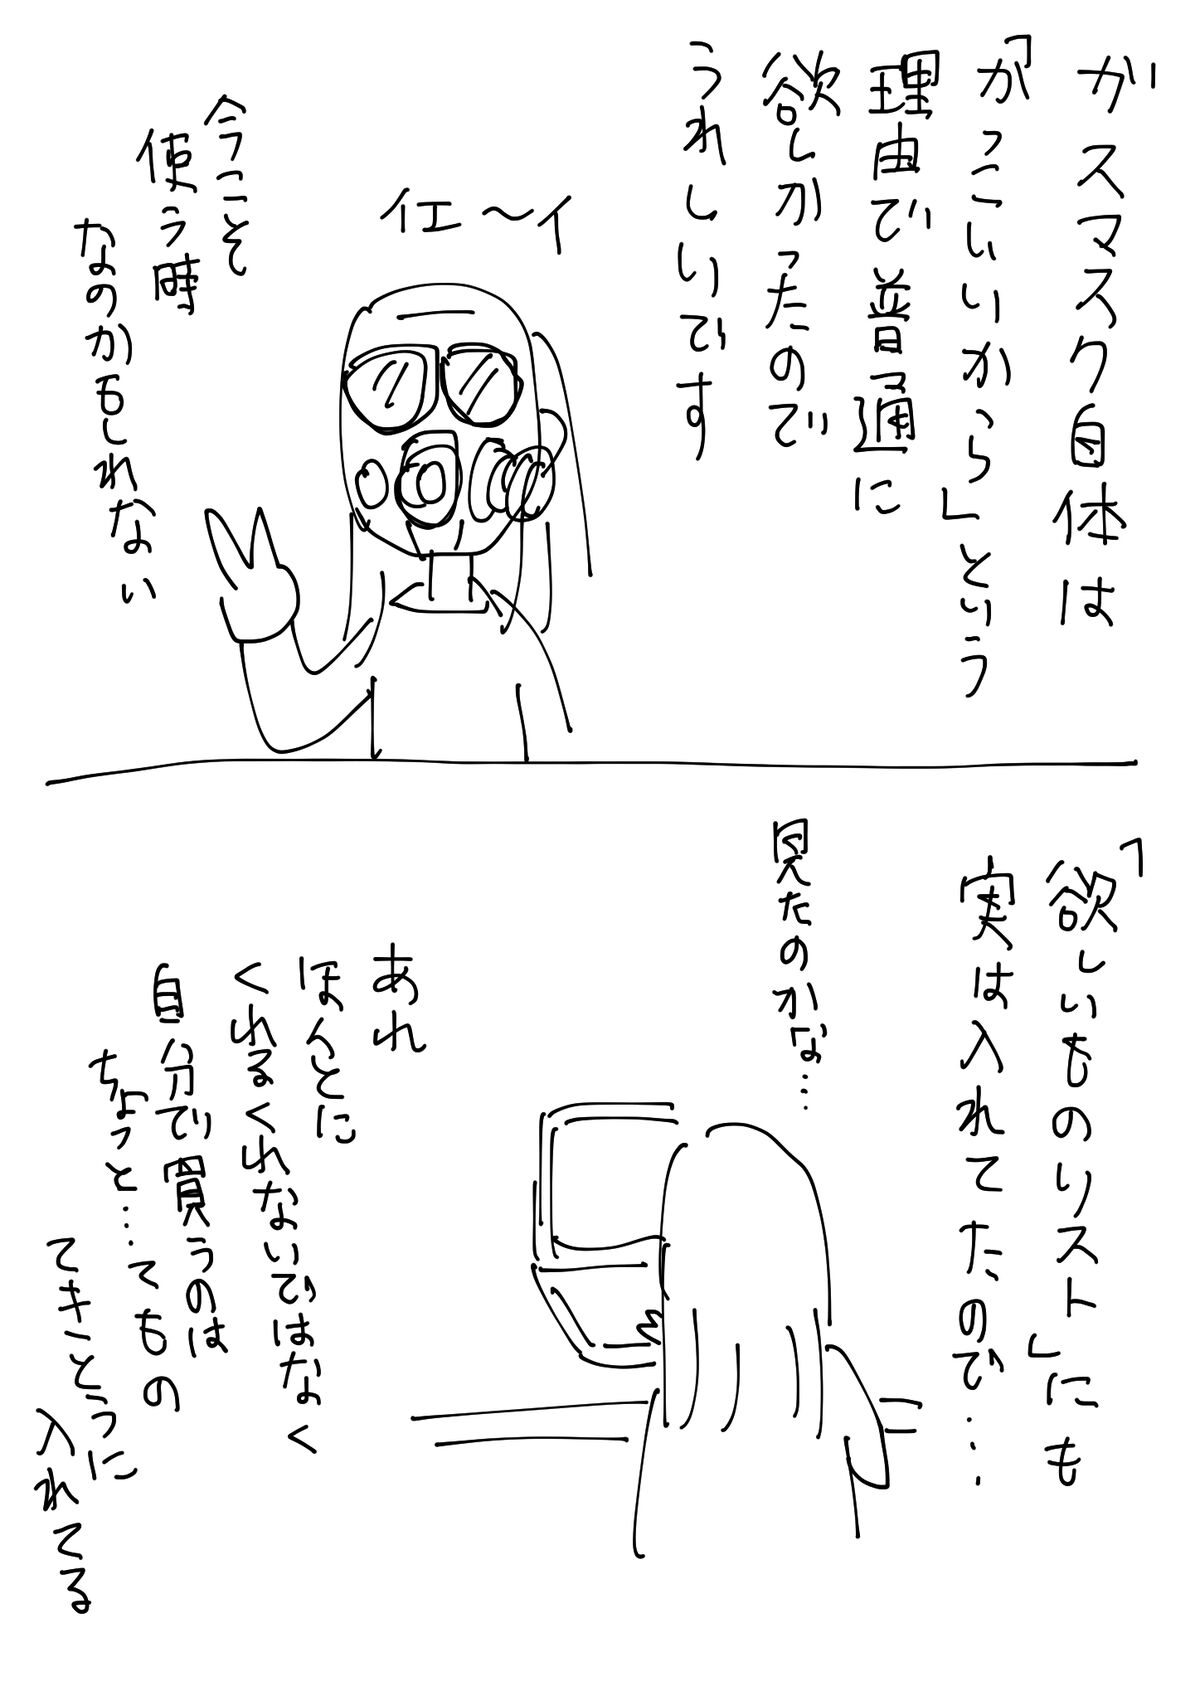 ガスマスク自体は
「かっこいいから」という
理由で普通に
欲しかったので
うれしいです
イエ～イ
今こそ
使う時
なのかもしれない
「欲しいものリスト」にも
実は入れてたので…
見たのかな…
あれ
ほんとに
くれるくれないではなく
自分で買うのは
ちょっと…てもの
てきとうに
入れてる